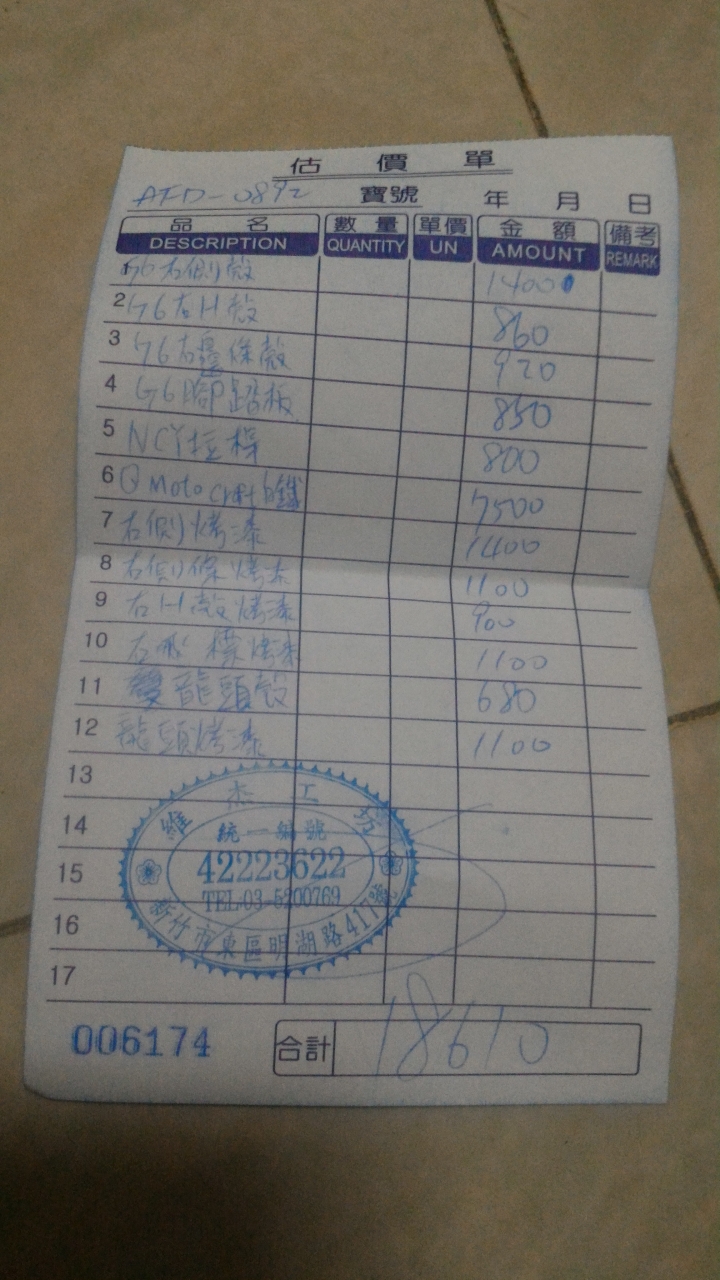 估價單
AFD-0892 寶號 年 月 日
品名 數量 單價 金額 備考
DESCRIPTION QUANTITY UN AMOUNT REMARK
1 G6右側殼 1400
2 G6右H殼 860
3 G6右邊條殼 920
4 G6腳踏板 850
5 NCY拉桿 800
6 Q Moto 7500
7 右側烤漆 1400
8 右側條烤漆 1100
9 右H殼烤漆 900
10 烤漆 1100
11 龍頭殼 680
12 龍頭烤漆 1100
13
14
15
16
17
維杰工坊
統一編號
42223622
TEL:03-5200769
新竹市東區明湖路417號
006174 合計 18610